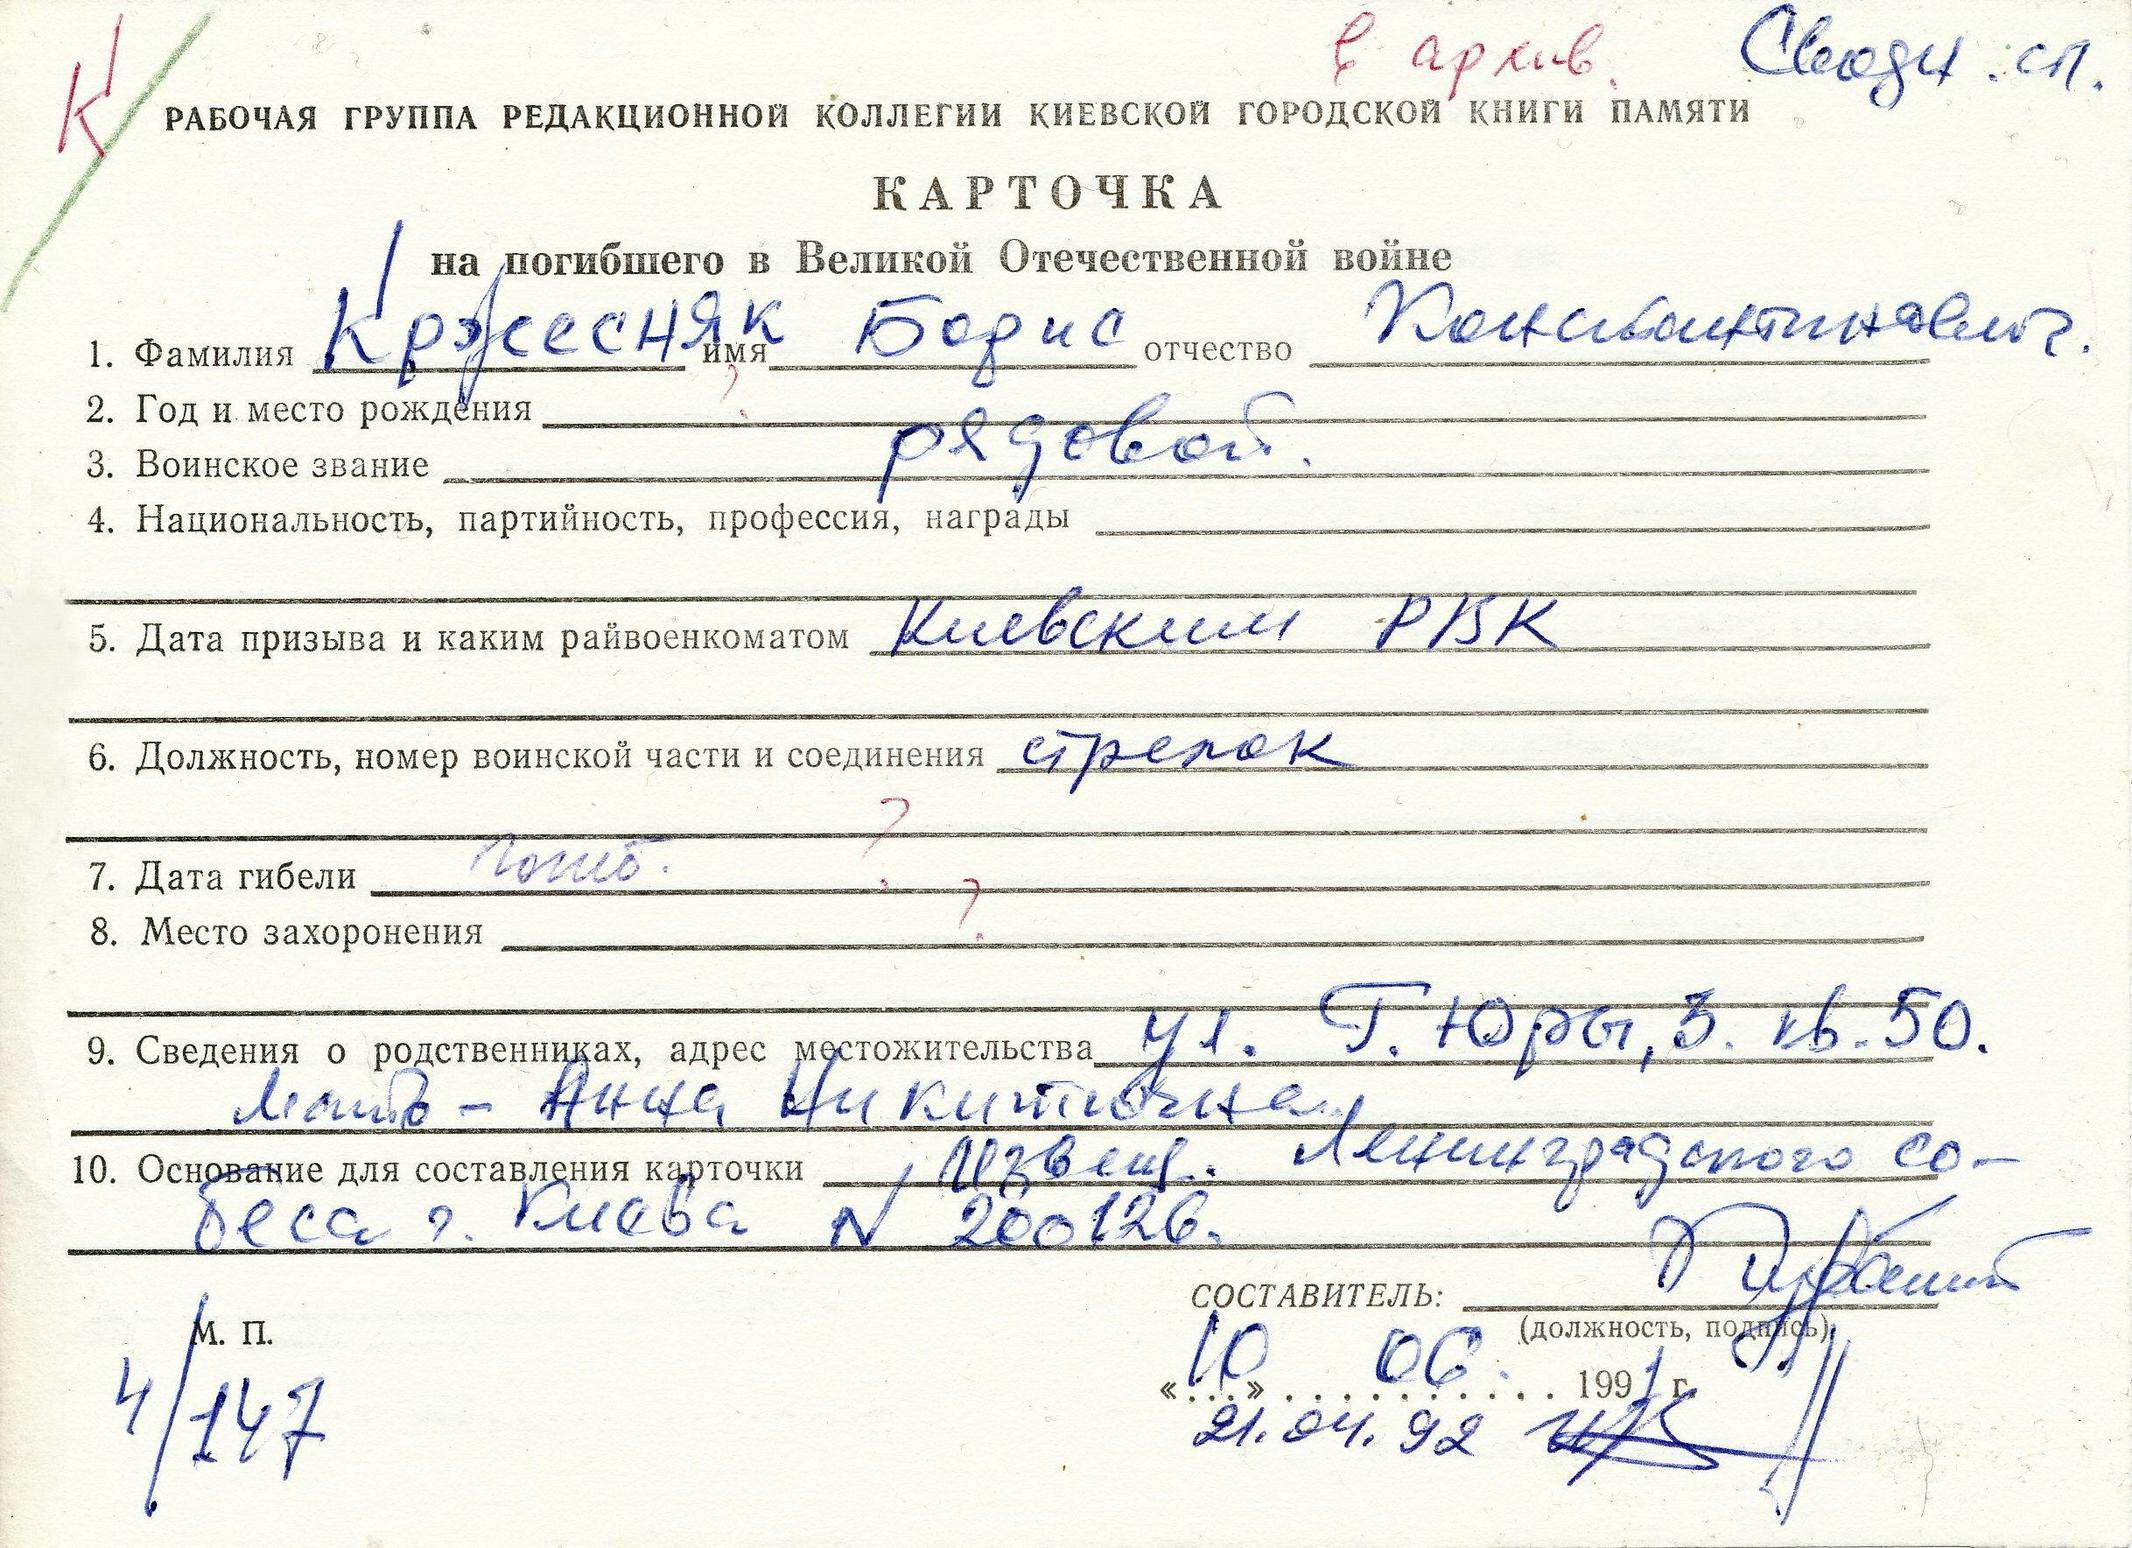 К в архив. Сводн. сп.
РАБОЧАЯ ГРУППА РЕДАКЦИОННОЙ КОЛЛЕГИИ КИЕВСКОЙ ГОРОДСКОЙ КНИГИ ПАМЯТИ
КАРТОЧКА
на погибшего в Великой Отечественной войне
1. Фамилия Кржесняк имя Борис отчество Константинович.
2. Год и место рождения ?
3. Воинское звание рядовой.
4. Национальность, партийность, профессия, награды
5. Дата призыва и каким райвоенкоматом Киевским РВК
6. Должность, номер воинской части и соединения стрелок
7. Дата гибели погиб. ?
8. Место захоронения ?
9. Сведения о родственниках, адрес местожительства ул. Г. Юры, 3. кв. 50.
Мать - Анна Никитична
10. Основание для составления карточки Извещ. Ленинградского со-
беса г. Киева N 200126.
СОСТАВИТЕЛЬ:
М. П. (должность, подпись)
«10» 06. 1991 г.
4/147 21.04.92